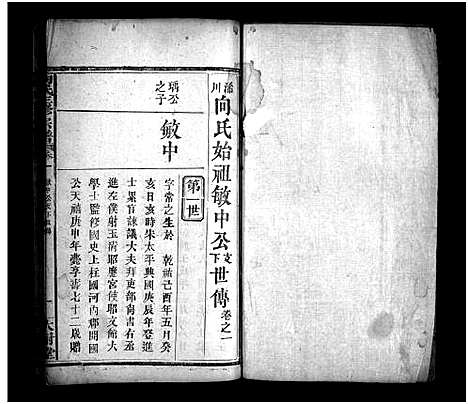 向氏始祖敏中公支下世傳卷之一
第一世
瑀公之子
敏中
字常之生於 乾祐己酉年五月癸
亥日亥時宋太平興國庚辰年登進
士累官諫議大夫拜吏部尚書右丞
進左僕射玉清昭應宮使昭文館大
學士監修國史上柱國河內郡開國
公天禧庚申年薨享壽七十二歲贈